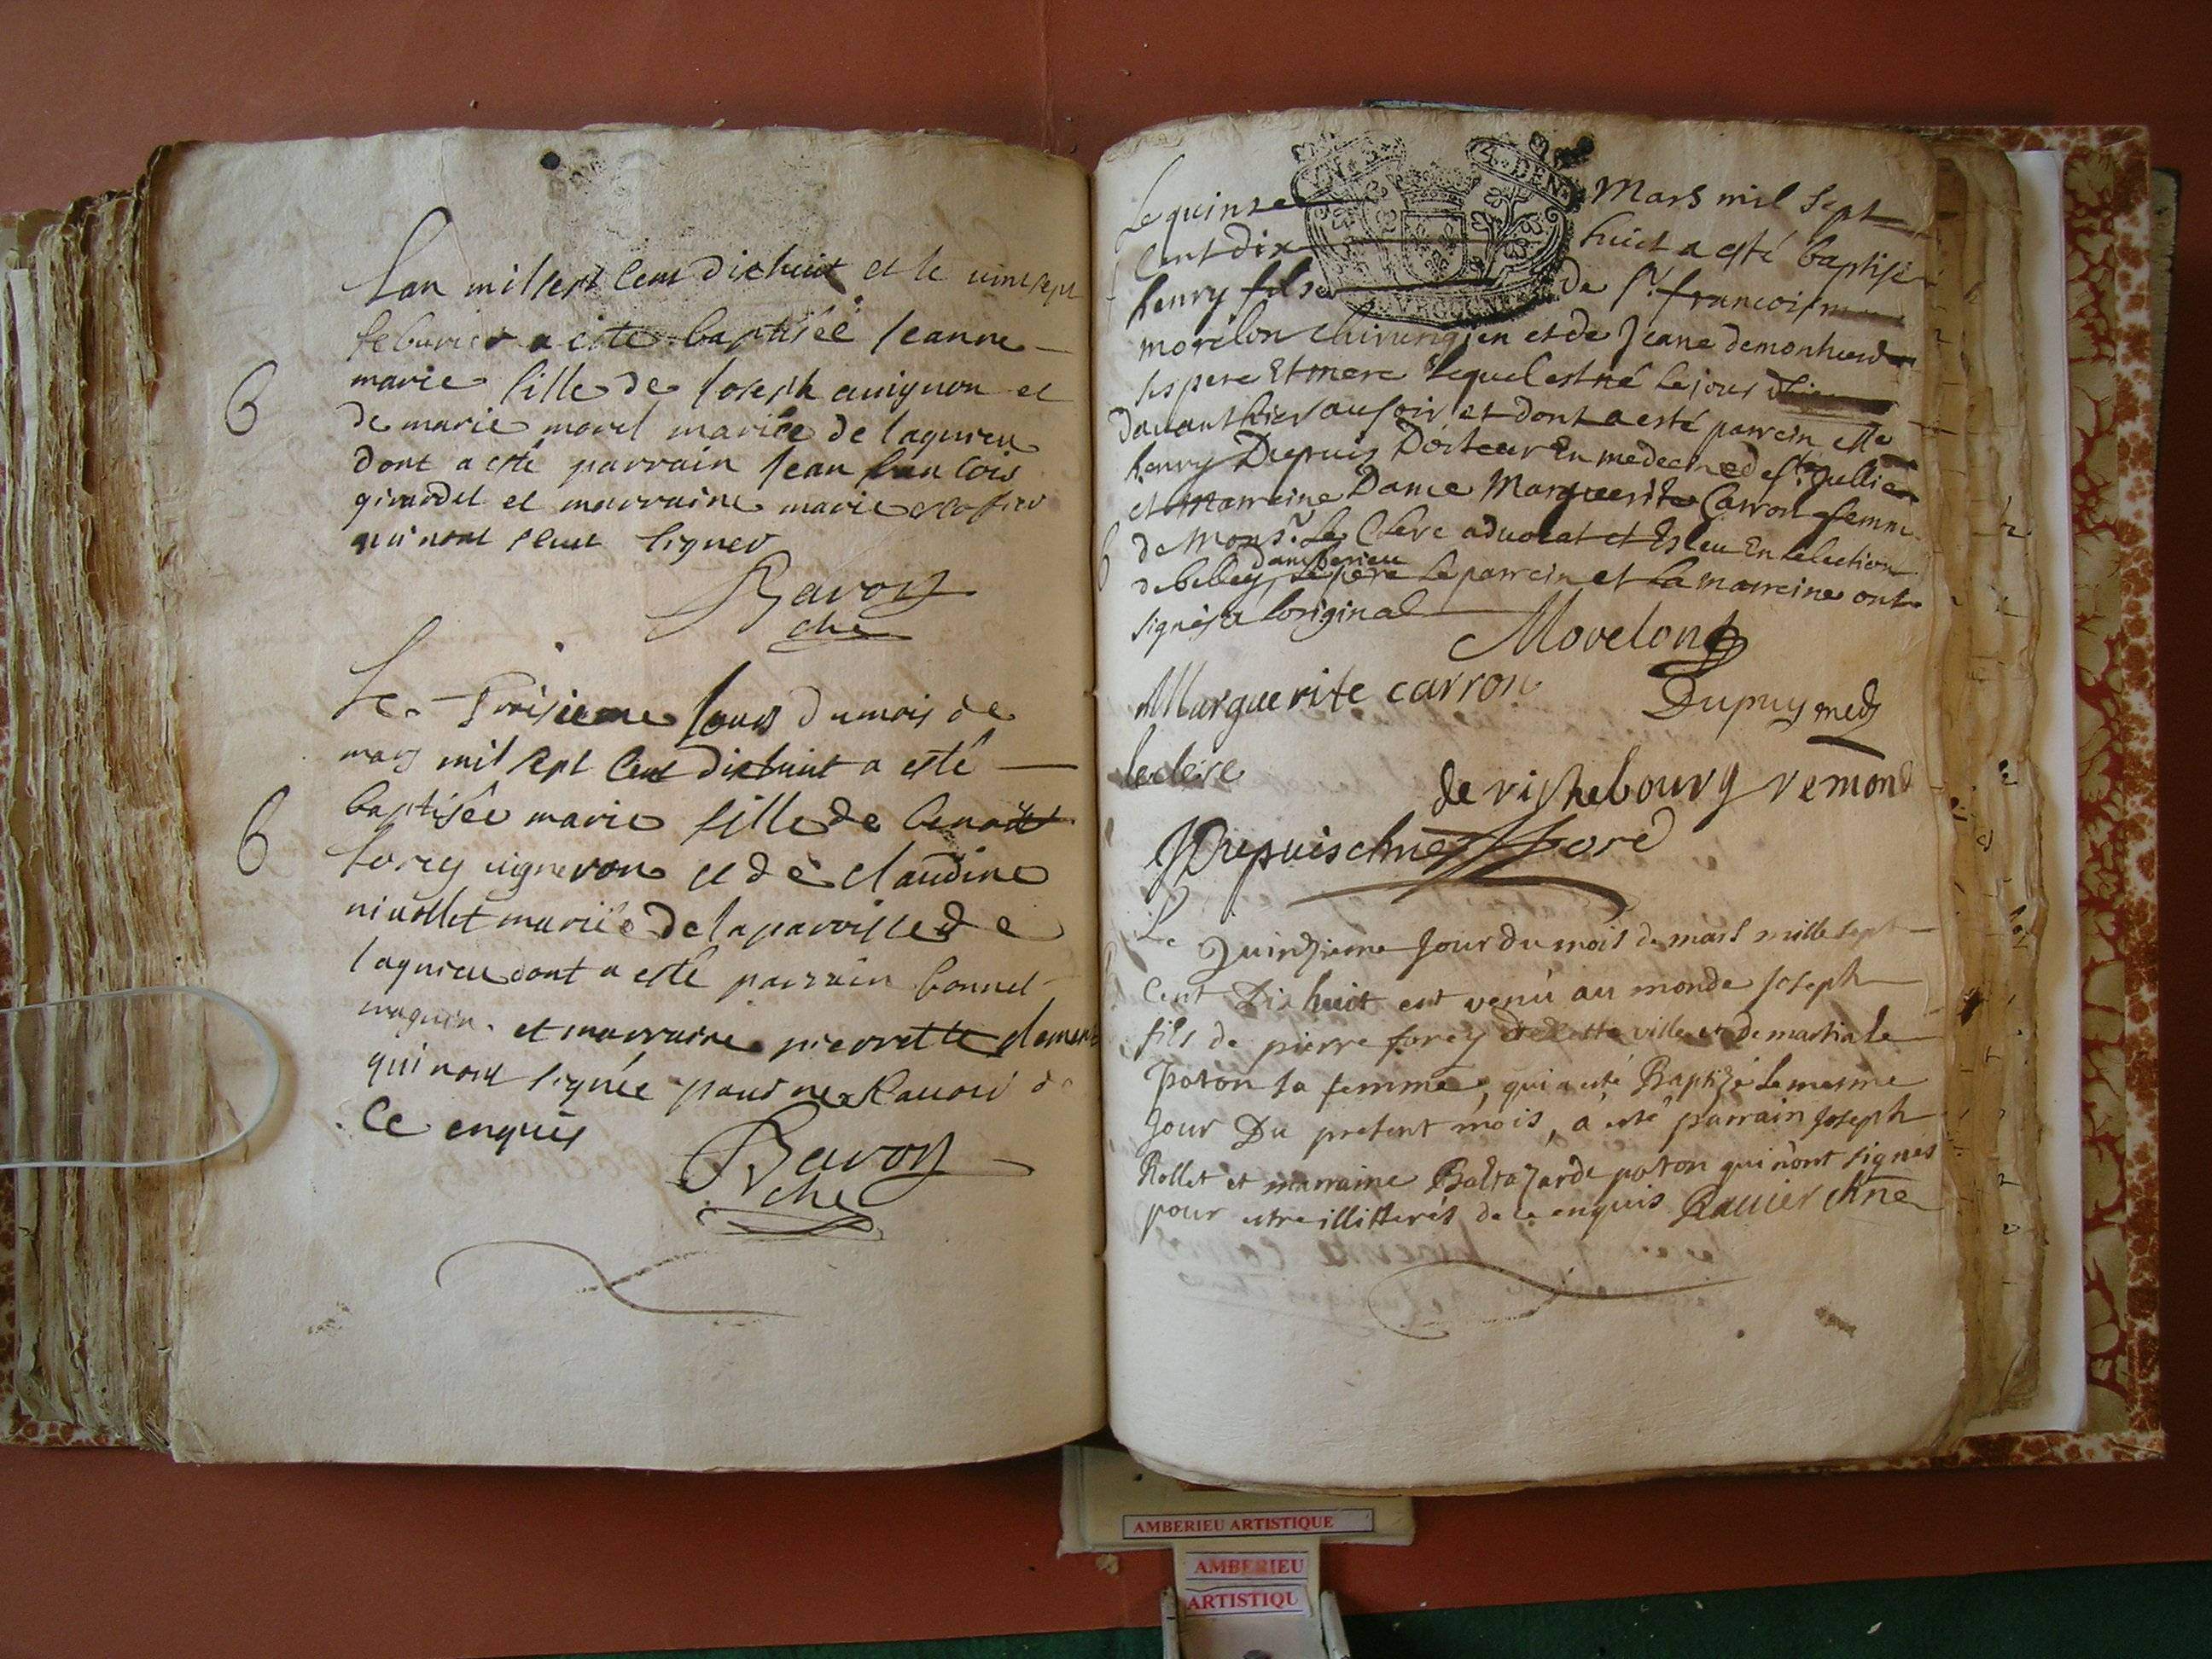 Lan mil sept cent dixhuit et le vint sept
feburier a este baptisée Jeanne
marie fille de Joseph auignon et
B
de marie morel mariée de lagnieu
dont a esté parrain Jean francois
girardet et marraine marie
qui nont sceut signer
Ravoy
che
Le Troisieme Jours du mois de
mars mil sept cent dixhuit a esté
baptisée marie fille de benoit
B
forey uigneron et de claudine
niuollet mariée de la paroisse de
lagnieu dont a esté parrain bonnet
magnin et marraine pierrette clement
qui nont signée pour ne scauoir de
Ce enquis
Ravoy
che
Le quinze Mars mil sept
Cent dix huict a esté baptisé
henry fils de Sr. francois
morelon chirurgien et de Jeane demonhuer
ses pere Et mere lequel est né le jour
dauant hier au soir et dont a esté parrein
henry Dupuis Docteur En medecine de St. Jullien
et Marreine Dame Marguerite Carron femme
de Monsr. Le Clerc aduocat et Esleu En Lelection
damberieu
de belley, le pere Le parrein et La marreine ont
signés a Loriginal
Morelon
Marguerite carron
Dupuy med
leclerc
de richebourg remond
JDupuis chne
fore
Le Quinzieme Jour du mois de mars mille sept
Cent Dix huit est venu au monde Joseph
fils de pierre forey de cette ville et de martiale
Poton sa femme, qui a esté Baptizé Le mesme
Jour Du present mois, a esté parrain Joseph
Rollet et marraine Baltazarde poton qui n'ont signés
pour estre illitterés de ce enquis Ravier chne
AMBERIEU ARTISTIQUE
AMBERIEU
ARTISTIQU